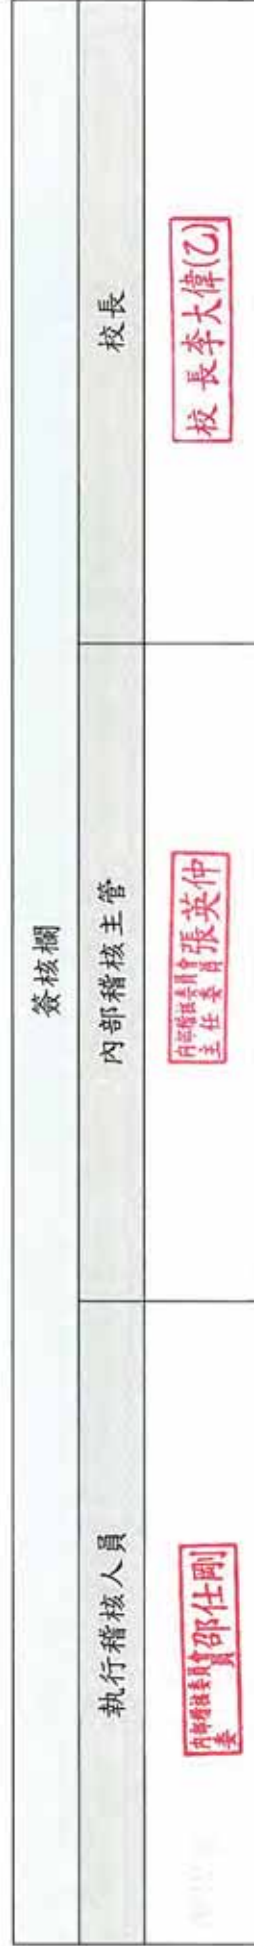 簽核欄
執行稽核人員
內部稽核主管
校長
內部稽核委員會
委員邵仕剛
內部稽核委員會
主任委員張英仲
校長李大偉(乙)